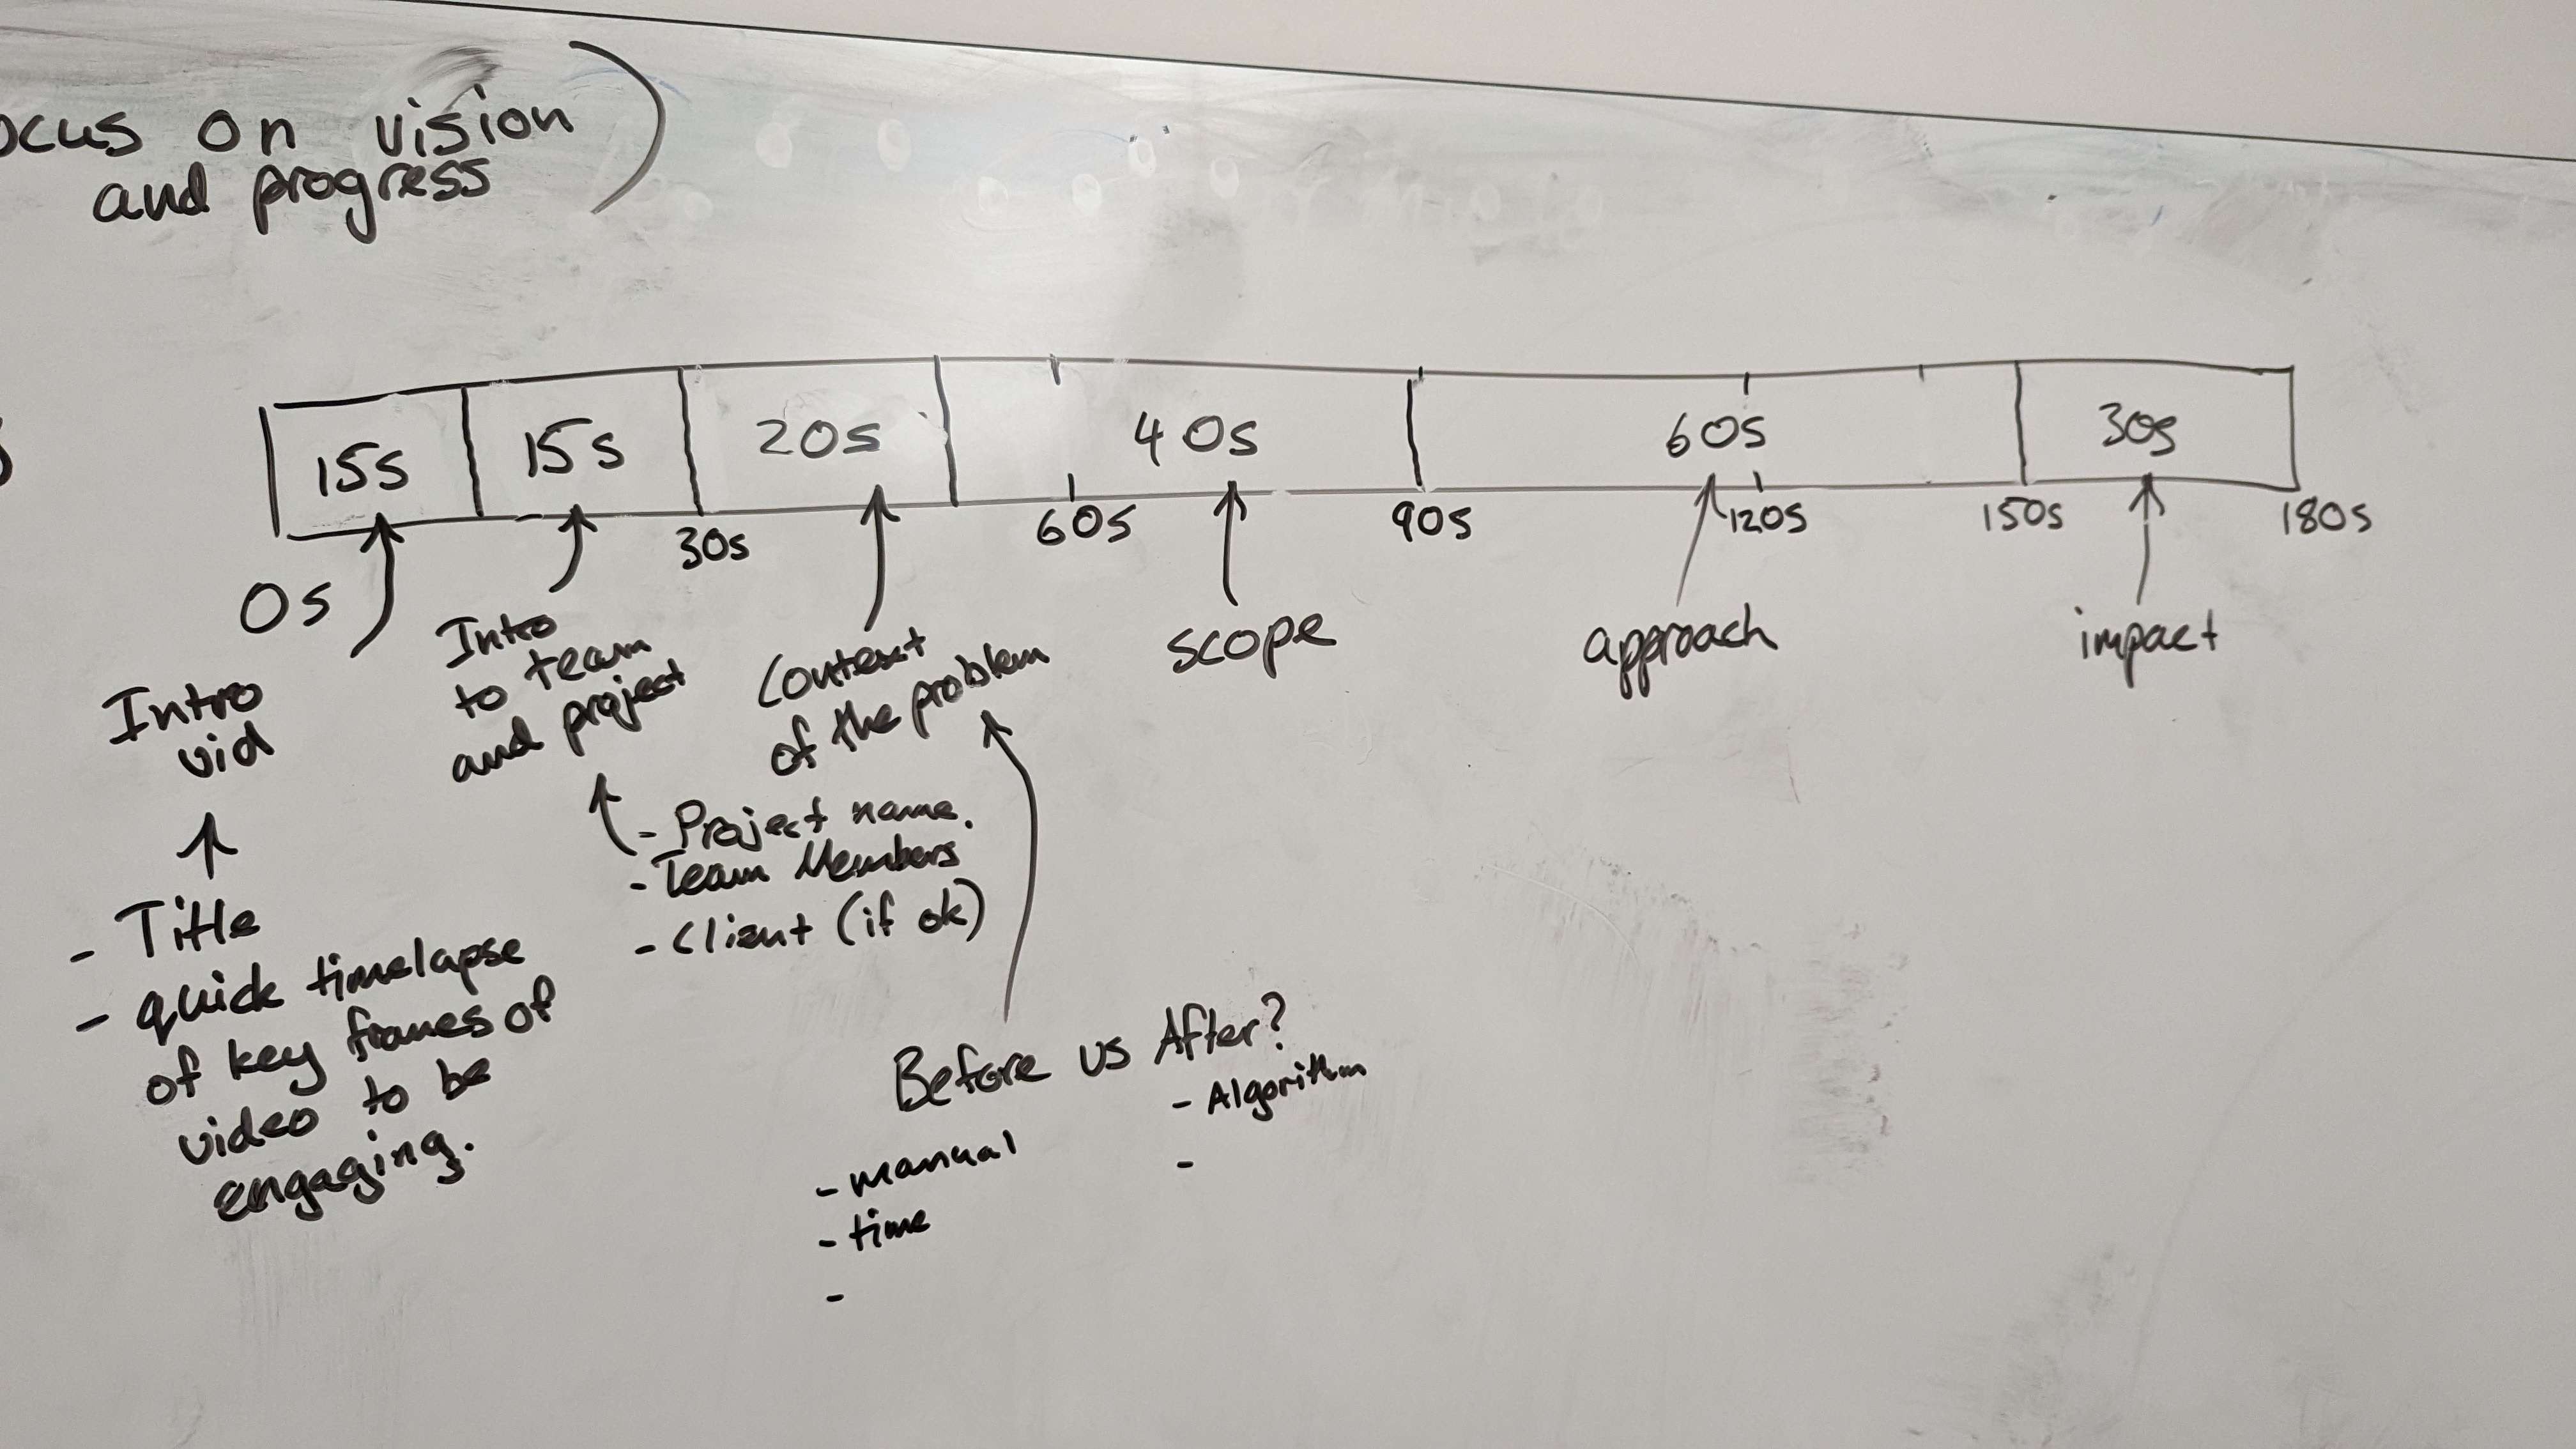 ocus on vision
and progress)
15s 15s 20s 40s 60s 30s
0s 30s 60s 90s 120s 150s 180s
Intro
vid
- Title
- quick timelapse
of key frames of
video to be
engaging.
Intro
to team
and project
- Project name.
- Team Members
- Client (if ok)
Context
of the problem
Before vs After?
- manual
- time
-
- Algorithm
-
scope
approach
impact